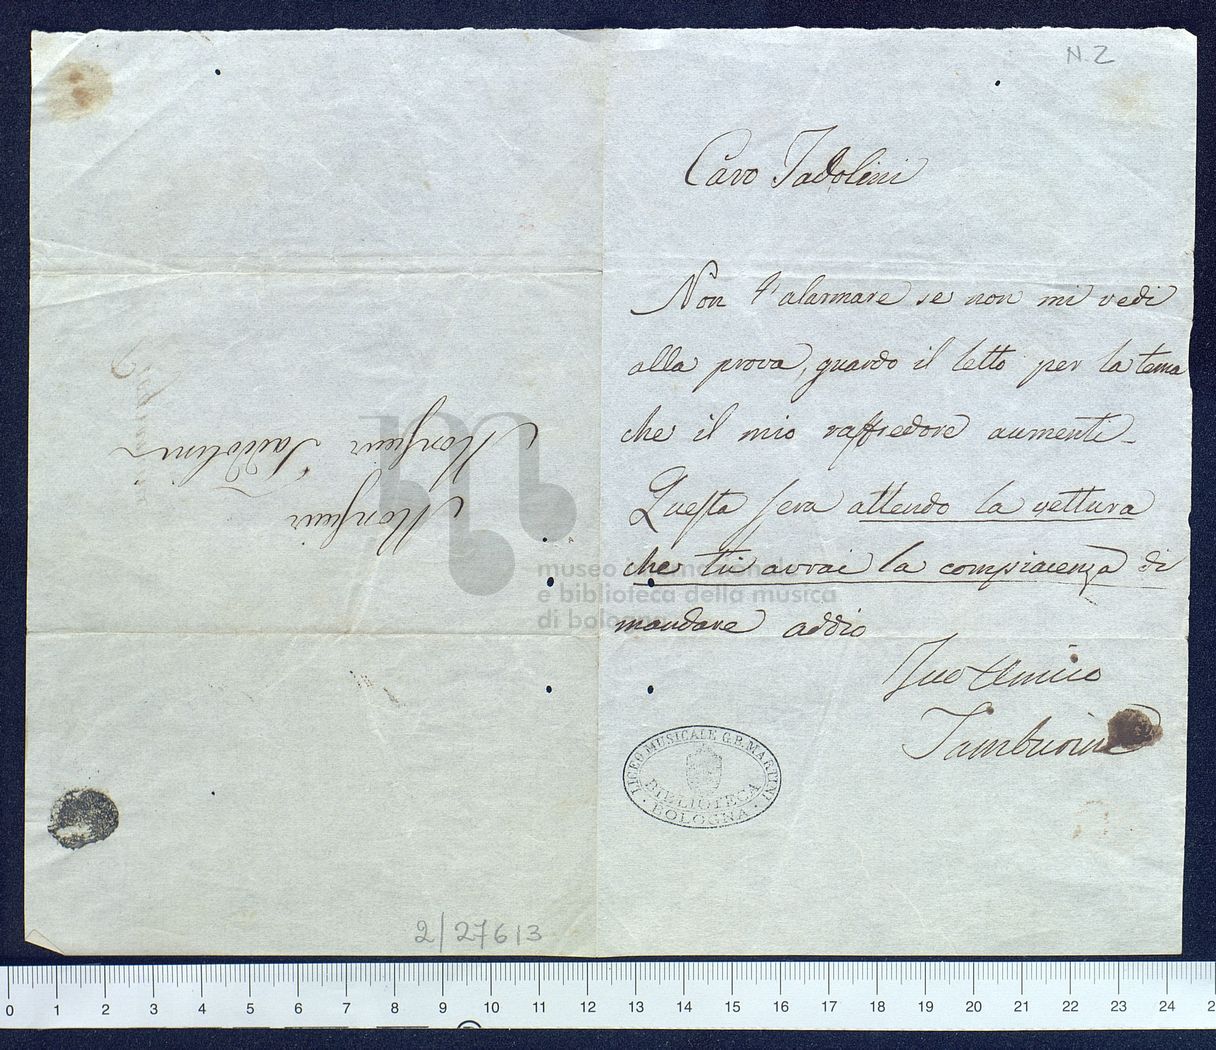 N. 2
Caro Tadolini
Non t'alarmare se non mi vedi
alla prova, guardo il letto per la tema
che il mio raffredore aumenti -
Questa sera attendo la vettura
che tu avrai la compiacenza di
mandare addio
Tuo Amico
Tamburini
LICEO MUSICALE G.B. MARTINI
BIBLIOTECA
BOLOGNA
Monsieur
Monsieur Tadolini
museo internazionale
e biblioteca della musica
di bologna
2/27613
0 1 2 3 4 5 6 7 8 9 10 11 12 13 14 15 16 17 18 19 20 21 22 23 24